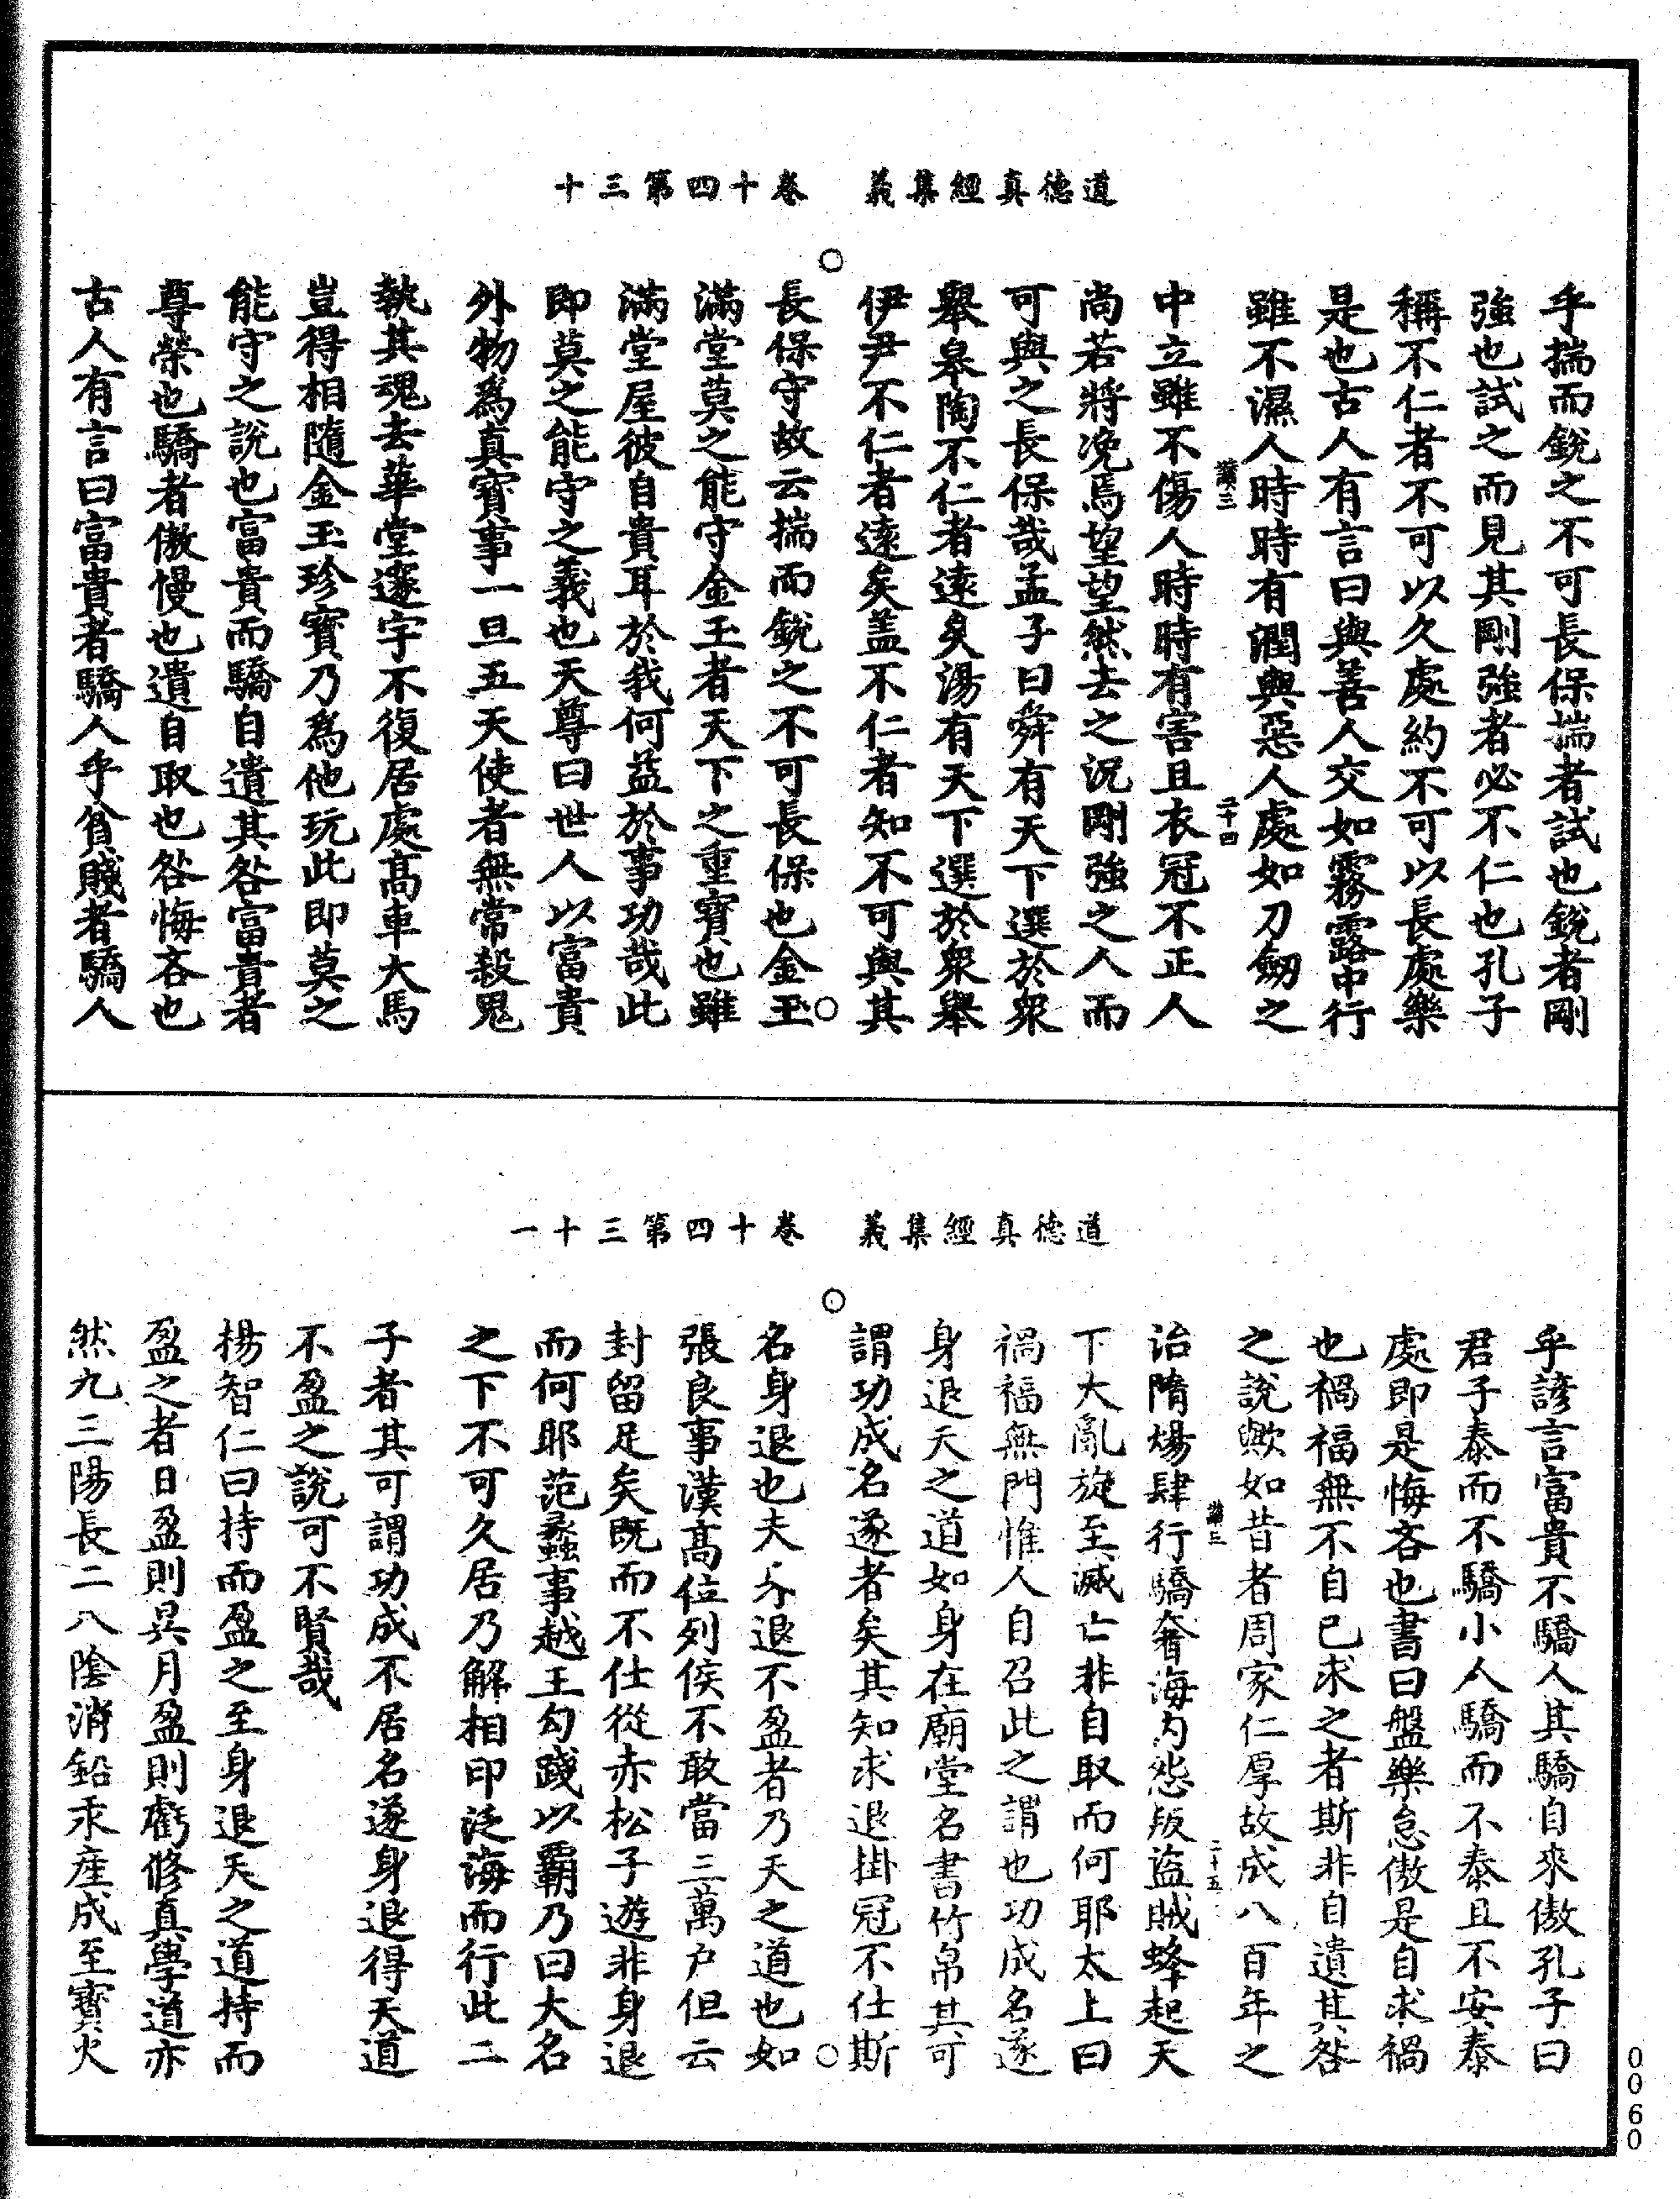 道德真經集義　卷十四第三十
乎揣而銳之不可長保揣者試也銳者剛
強也試之而見其剛強者必不仁也孔子
稱不仁者不可以久處約不可以長處樂
是也古人有言曰與善人交如霧露中行
雖不濕人時時有潤與惡人處如刀劒之
二十四
中立雖不傷人時時有害且衣冠不正人
尚若將凂焉望望然去之況剛強之人而
可與之長保哉孟子曰舜有天下選於衆
舉皋陶不仁者遠矣湯有天下選於衆舉
伊尹不仁者遠矣蓋不仁者知不可與其
長保守故云揣而銳之不可長保也金玉
滿堂莫之能守金玉者天下之重寳也雖
滿堂屋彼自貴耳於我何益於事功哉此
即莫之能守之義也天尊曰世人以富貴
外物爲真寳事一旦五天使者無常殺鬼
執其魂去華堂邃宇不復居處高車大馬
豈得相隨金玉珍寳乃爲他玩此即莫之
能守之說也富貴而驕自遺其咎富貴者
尊榮也驕者傲慢也遺自取也咎悔吝也
古人有言曰富貴者驕人乎貧賤者驕人
道德真經集義　卷十四第三十一
乎諺言富貴不驕人其驕自來傲孔子曰
君子泰而不驕小人驕而不泰且不安泰
處即是悔吝也書曰盤樂怠傲是自求禍
也禍福無不自已求之者斯非自遺其咎
之說歟如昔者周家仁厚故成八百年之
二十五
治隋煬肆行驕奢海內怨叛盜賊蜂起天
下大亂旋至滅亡非自取而何耶太上曰
禍福無門惟人自召此之謂也功成名遂
身退天之道如身在廟堂名書竹帛其可
謂功成名遂者矣其知求退掛冠不仕斯
名身退也夫不退不盈者乃天之道也如
張良事漢高位列侯不敢當三萬户但云
封留足矣既而不仕從赤松子遊非身退
而何耶范蠡事越王勾踐以霸乃曰大名
之下不可久居乃解相印泛海而行此二
子者其可謂功成不居名遂身退得天道
不盈之說可不賢哉
楊智仁曰持而盈之至身退天之道持而
盈之者日盈則昃月盈則虧修真學道亦
然九三陽長二八陰消鉛汞産成至寳火
0060